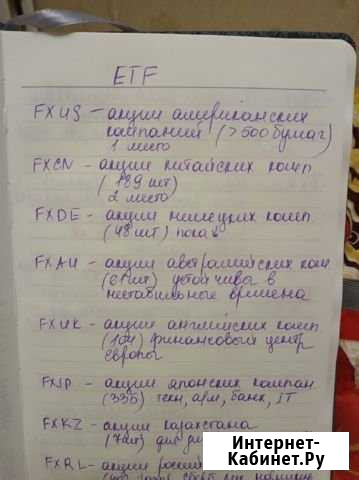 ETF
FXUS - акции американских
компаний (>500 бумаг)
1 место
FXCN - акции китайских комп
(189 шт)
2 место
FXDE - акции немецких комп.
(48 шт) пока ↓
FXAU - акции австралийских ком
(61 шт) устойчивы в
нестабильные времена
FXUK - акции английских комп.
(104) финансовый центр
европы
FXJP - акции японских компан
(335) банк, IT
FXKZ - акции казахстана
FXRL - акции
Интернет-
Кабинет.Ру